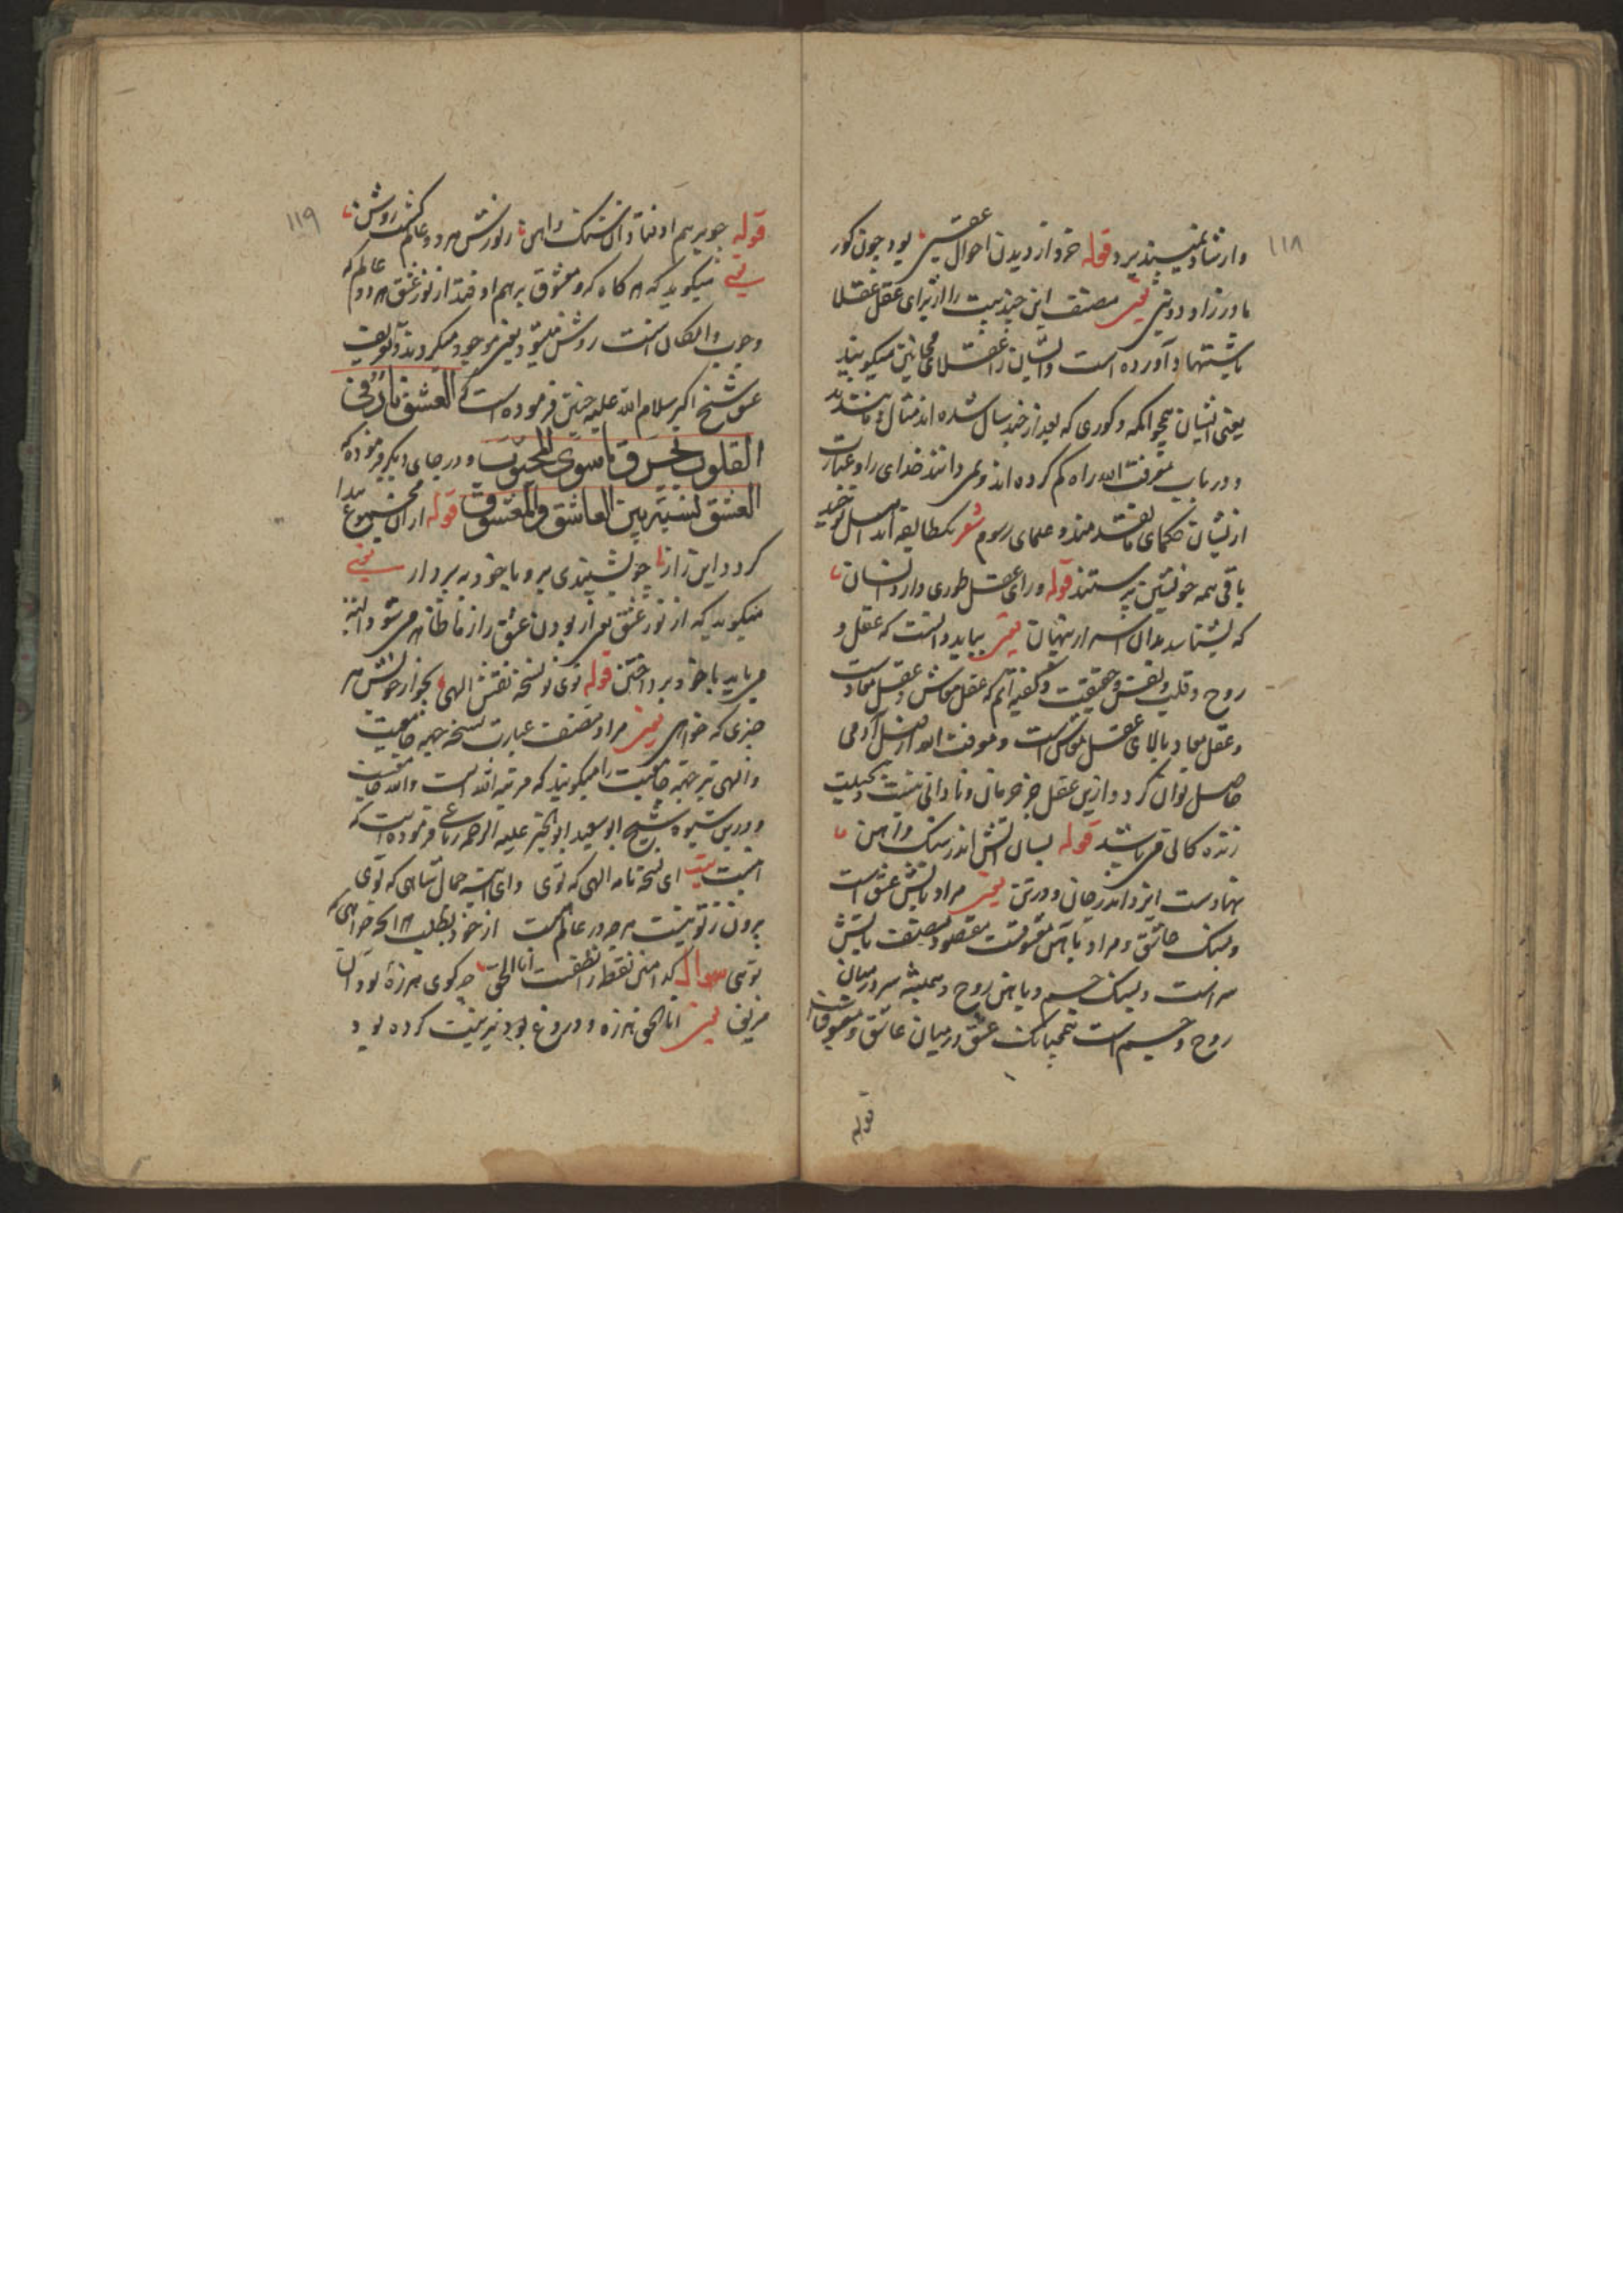 ۱۱۸
وارشاد نمی‌پذیرد قوله خرد از دیدن احوال عقبی بود چون کور
مادرزاد دنیی یعنی مصنف این چند بیت را از برای عقل عقلا
باستشهاد آورده است و ایشان را عقلای مجانین میگویند
یعنی ایشان همچو اکمه و کوری که بعد از چند سال شده اند مثال و مانند اند
و در باب معرفت الله راه گم کرده اند و نمی دانند خدای را و عبارت
از ایشان حکمای ما تقدمند و علمای رسوم شعر یکطایفه اند اهل توحید
باقی همه خویشتن پرستند قوله ورای عقل طوری دارد انسان
که بشناسد بدان اسرار پنهان یعنی بباید دانست که عقل و
روح و قلب و نفس و حقیقت و گفته ایم که عقل معاش و عقل معادست
و عقل معاد بالای عقل معاش است و معرفت الله از فضل آدمی
حاصل توان کرد و ازین عقل جز حرمان و نادانی نیست
زنده کانی می باشد قوله بسان آتش اندر سنگ و آهن
نهادست ایزد اندر جان و در تن یعنی مراد باتش عشق است
و بسنک عاشق و مراد باهن معشوقست مقصود مصنف باتش
سر است و بسنک جسم و باهن روح و همیشه سر در میان
روح و جسم است همچنانک عشق در میان عاشق و معشوقست
قوله
۱۱۹
قوله چو برهم اوفتاد آن سنگ و آهن ز نورش هر دو عالم گشت روشن
یعنی میگوید که هر گاه که و معشوق برهم اوفتد از نور عشق هر دو عالم که
وجوب و امکان است روشن میشود یعنی موجود میگردند و تعریف
عشق شیخ اکبر سلام الله علیه چنین فرموده است که العشق نار فی
القلوب یحرق ما سوی المحبوب و در جای دیگر فرموده که
العشق نسبة بین العاشق والمعشوق قوله از آن مجموع پیدا
گردد این راز چو بشنیدی برو با خود بپرداز یعنی
میگوید که از نور عشق بعد از بودن عشق راز ما ظاهر می شود البته
می باید با خود پرداختن قوله توی تو نسخه نقش الهی بجو از خویش هر
چیزی که خواهی یعنی مراد مصنف عبارت نسخه جهة جامعیت
و الهی نیز جهة جامعیت را میگویند که مرتبه الله است والله جامعست
و درین شیوه شیخ ابو سعید ابو الخیر علیه الرحمه رباعی فرموده است که
اینست بیت ای نسخه نامه الهی که توی وای آینه جمال شاهی که توی
برون ز تو نیست هرچه در عالم هست از خود بطلب هر آنچه خواهی که
توی سوال کدامین نقطه را نطقست انا الحق چه گوی هرزه بود آن
مزبق یعنی انا الحق هرزه و دروغ بود نیز نیت کرده بود